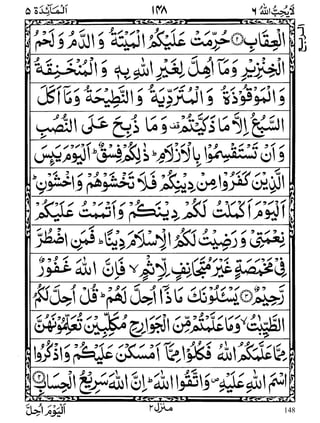 لَا يُحِبُّ اللهُ ٦ ١٣٨ اَلْمَآئِدَة ٥
الْعِقَابِ ﴿٢﴾ حُرِّمَتْ عَلَيْكُمُ الْمَيْتَةُ وَ الدَّمُ وَ لَحْمُ
الْخِنْزِيْرِ وَ مَاۤ اُهِلَّ لِغَيْرِ اللهِ بِهٖ وَ الْمُنْخَنِقَةُ
وَ الْمَوْقُوْذَةُ وَ الْمُتَرَدِّيَةُ وَ النَّطِيْحَةُ وَ مَاۤ اَكَلَ
السَّبُعُ اِلَّا مَا ذَكَّيْتُمْ وَ مَا ذُبِحَ عَلَى النُّصُبِ
وَ اَنْ تَسْتَقْسِمُوْا بِالْاَزْلَامِ ؕ ذٰلِكُمْ فِسْقٌ ؕ اَلْيَوْمَ يَىِٕسَ
الَّذِيْنَ كَفَرُوْا مِنْ دِيْنِكُمْ فَلَا تَخْشَوْهُمْ وَ اخْشَوْنِ ؕ
اَلْيَوْمَ اَكْمَلْتُ لَكُمْ دِيْنَكُمْ وَ اَتْمَمْتُ عَلَيْكُمْ
نِعْمَتِيْ وَ رَضِيْتُ لَكُمُ الْاِسْلَامَ دِيْنًا ؕ فَمَنِ اضْطُرَّ
فِيْ مَخْمَصَةٍ غَيْرَ مُتَجَانِفٍ لِّاِثْمٍ ۙ فَاِنَّ اللهَ غَفُوْرٌ
رَّحِيْمٌ ﴿٣﴾ يَسْـَٔلُوْنَكَ مَا ذَاۤ اُحِلَّ لَهُمْ ؕ قُلْ اُحِلَّ لَكُمُ
الطَّيِّبٰتُ ۙ وَ مَا عَلَّمْتُمْ مِّنَ الْجَوَارِحِ مُكَلِّبِيْنَ تُعَلِّمُوْنَهُنَّ
مِمَّا عَلَّمَكُمُ اللهُ فَكُلُوْا مِمَّاۤ اَمْسَكْنَ عَلَيْكُمْ وَ اذْكُرُوا
اسْمَ اللهِ عَلَيْهِ وَ اتَّقُوا اللهَ ؕ اِنَّ اللهَ سَرِيْعُ الْحِسَابِ ﴿٤﴾
اَلْيَوْمَ اُحِلَّ منزل ٢ 148